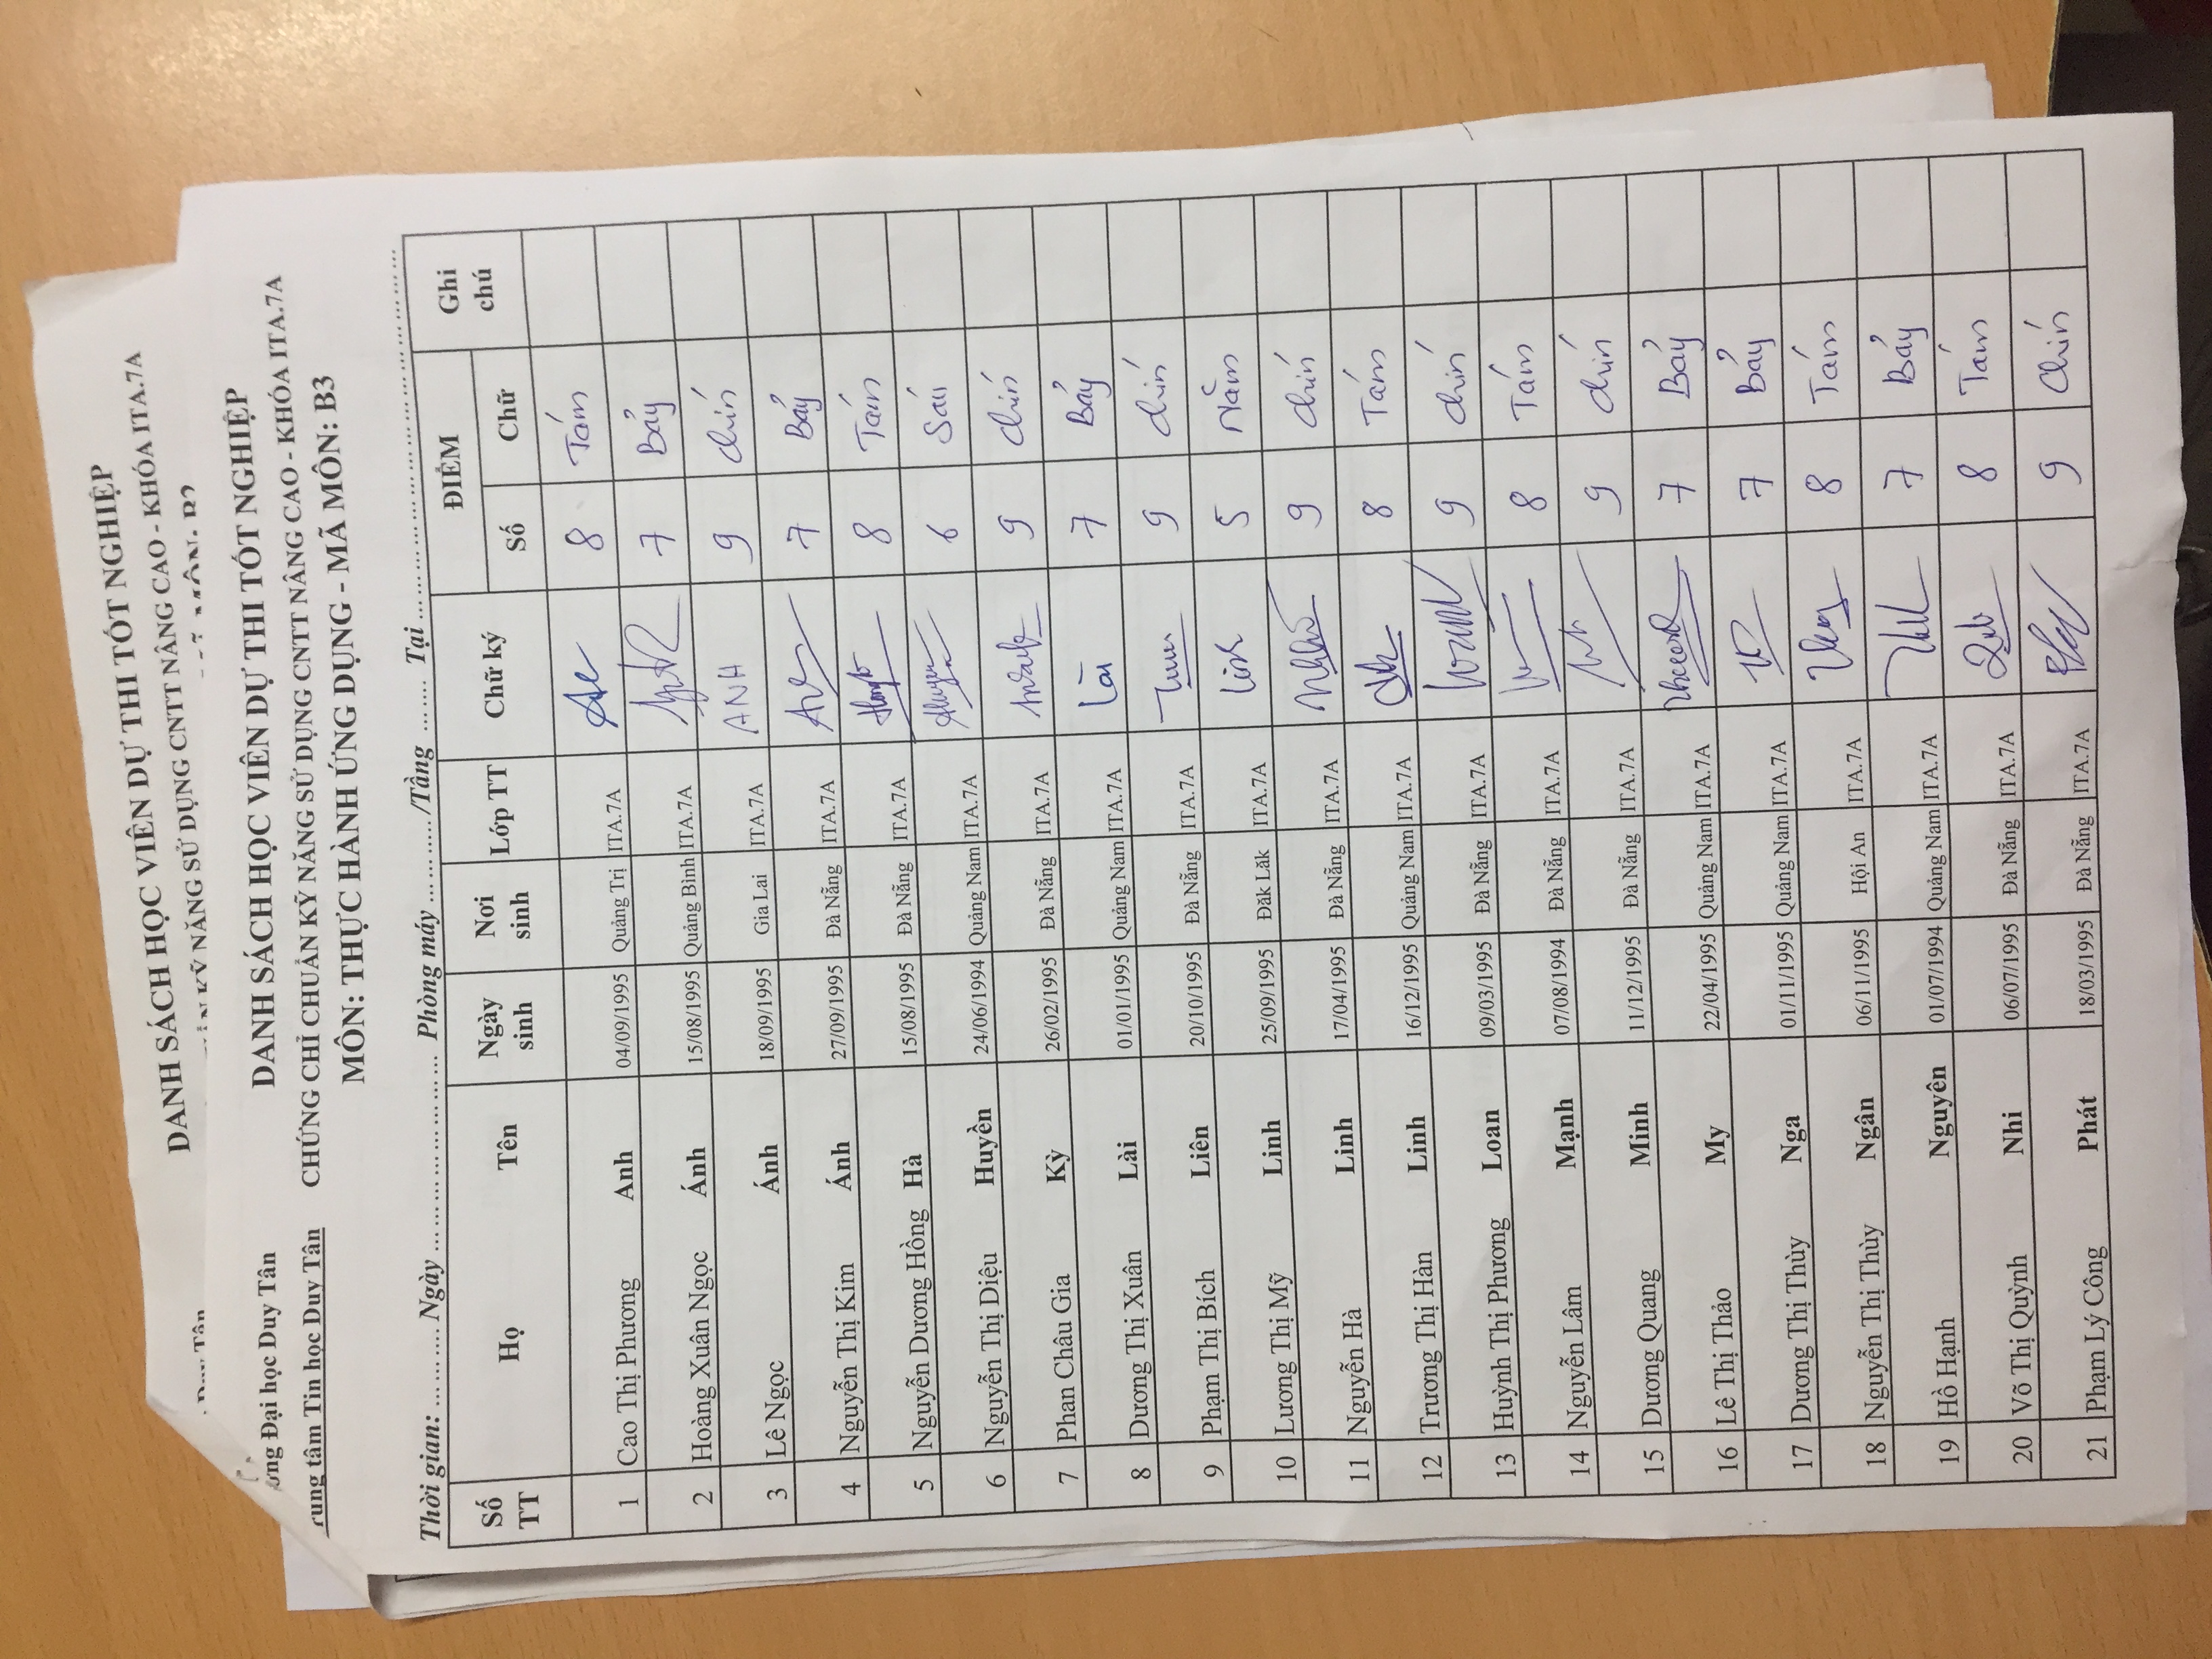 DANH SÁCH HỌC VIÊN DỰ THI TỐT NGHIỆP
KỸ NĂNG SỬ DỤNG CNTT NÂNG CAO - KHÓA ITA.7A
Duy Tân
ờng Đại học Duy Tân DANH SÁCH HỌC VIÊN DỰ THI TỐT NGHIỆP
rung tâm Tin học Duy Tân CHỨNG CHỈ CHUẨN KỸ NĂNG SỬ DỤNG CNTT NÂNG CAO - KHÓA ITA.7A
MÔN: THỰC HÀNH ỨNG DỤNG - MÃ MÔN: B3
Thời gian: ............ Ngày ........................ Phòng máy ............/Tầng ...... Tại ..............................
Số TT Họ Tên Ngày sinh Nơi sinh Lớp TT Chữ ký ĐIỂM Ghi chú
Số Chữ
1 Cao Thị Phương Anh 04/09/1995 Quảng Trị ITA.7A 8 Tám
2 Hoàng Xuân Ngọc Ánh 15/08/1995 Quảng Bình ITA.7A 7 Bảy
3 Lê Ngọc Ánh 18/09/1995 Gia Lai ITA.7A ANH 9 Chín
4 Nguyễn Thị Kim Ánh 27/09/1995 Đà Nẵng ITA.7A 7 Bảy
5 Nguyễn Dương Hồng Hà 15/08/1995 Đà Nẵng ITA.7A 8 Tám
6 Nguyễn Thị Diệu Huyền 24/06/1994 Quảng Nam ITA.7A 6 Sáu
7 Phan Châu Gia Kỳ 26/02/1995 Đà Nẵng ITA.7A 9 Chín
8 Dương Thị Xuân Lài 01/01/1995 Quảng Nam ITA.7A Lài 7 Bảy
9 Phạm Thị Bích Liên 20/10/1995 Đà Nẵng ITA.7A 9 Chín
10 Lương Thị Mỹ Linh 25/09/1995 Đăk Lăk ITA.7A Linh 5 Năm
11 Nguyễn Hà Linh 17/04/1995 Đà Nẵng ITA.7A 9 Chín
12 Trương Thị Hàn Linh 16/12/1995 Quảng Nam ITA.7A 8 Tám
13 Huỳnh Thị Phương Loan 09/03/1995 Đà Nẵng ITA.7A 9 Chín
14 Nguyễn Lâm Mạnh 07/08/1994 Đà Nẵng ITA.7A 8 Tám
15 Dương Quang Minh 11/12/1995 Đà Nẵng ITA.7A 9 Chín
16 Lê Thị Thảo My 22/04/1995 Quảng Nam ITA.7A 7 Bảy
17 Dương Thị Thùy Nga 01/11/1995 Quảng Nam ITA.7A 7 Bảy
18 Nguyễn Thị Thùy Ngân 06/11/1995 Hội An ITA.7A 8 Tám
19 Hồ Hạnh Nguyên 01/07/1994 Quảng Nam ITA.7A 7 Bảy
20 Võ Thị Quỳnh Nhi 06/07/1995 Đà Nẵng ITA.7A 8 Tám
21 Phạm Lý Công Phát 18/03/1995 Đà Nẵng ITA.7A 9 Chín